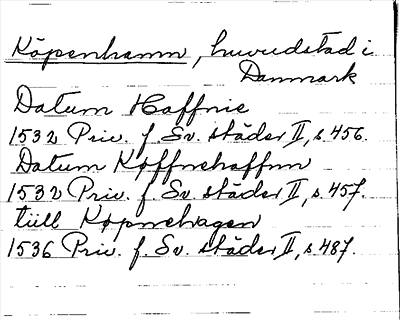 Köpenhamn, huvudstad i
Danmark
Datum Haffnie
1532 Priv. f. Sv. städer II, s. 456.
Datum Køffnehaffnn
1532 Priv. f. Sv. städer II, s. 457.
tiill Køpnehagen
1536 Priv. f. Sv. städer II, s. 487.